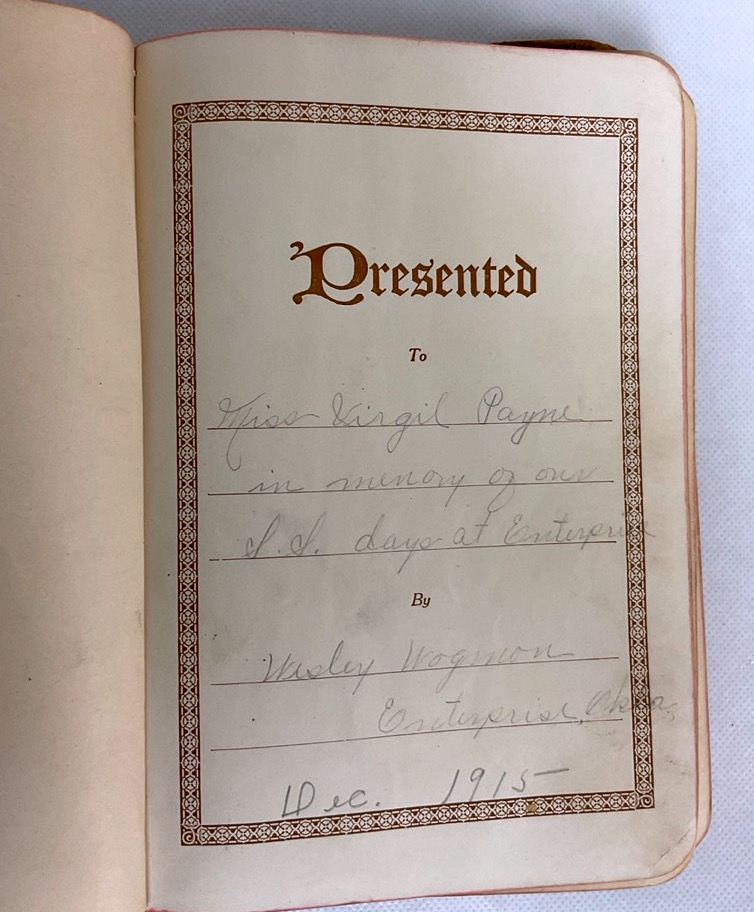 Presented
To
Miss Virgil Payne
in memory of our
S.S. days at Enterprise
By
Wesley Wogmon
Enterprise, Okla.
Dec. 1915